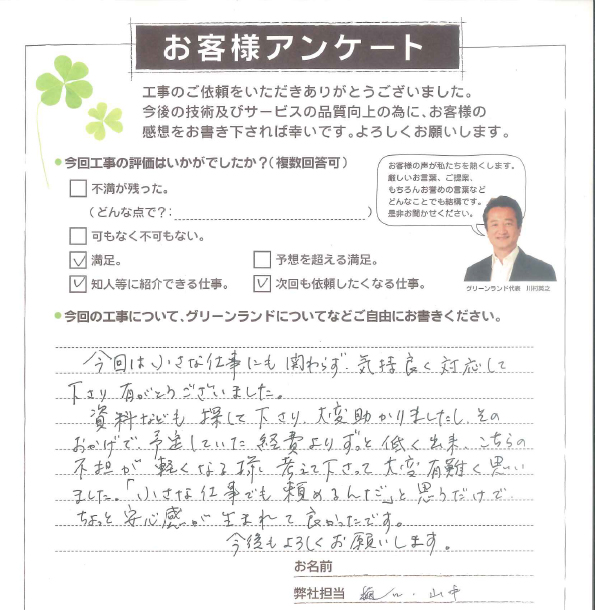 お客様アンケート
工事のご依頼をいただきありがとうございました。
今後の技術及びサービスの品質向上の為に、お客様の
感想をお書き下されば幸いです。よろしくお願いします。
今回工事の評価はいかがでしたか?(複数回答可)
不満が残った。
(どんな点で?:)
可もなく不可もない。
満足。
予想を超える満足。
知人等に紹介できる仕事。
次回も依頼したくなる仕事。
お客様の声が私たちを熱くします。
厳しいお言葉、ご提案、
もちろんお誉めの言葉など
どんなことでも結構です。
是非お聞かせください。
グリーンランド代表
今回の工事について、グリーンランドについてなどご自由にお書きください。
今回は小さな仕事にも関わらず、気持良く対応して
下さり有がとうございました。
資料なども探して下さり、大変助かりましたし、その
おかげで、予定していた経費よりずっと低く出来、こちらの
不担が軽くなる様に考えて下さって大変有難く思い
ました。「小さな仕事でも頼めるんだ」と思うだけで
ちょっと安心感が生まれて良かったです。
今後もよろしくお願いします。
お名前
弊社担当 山中